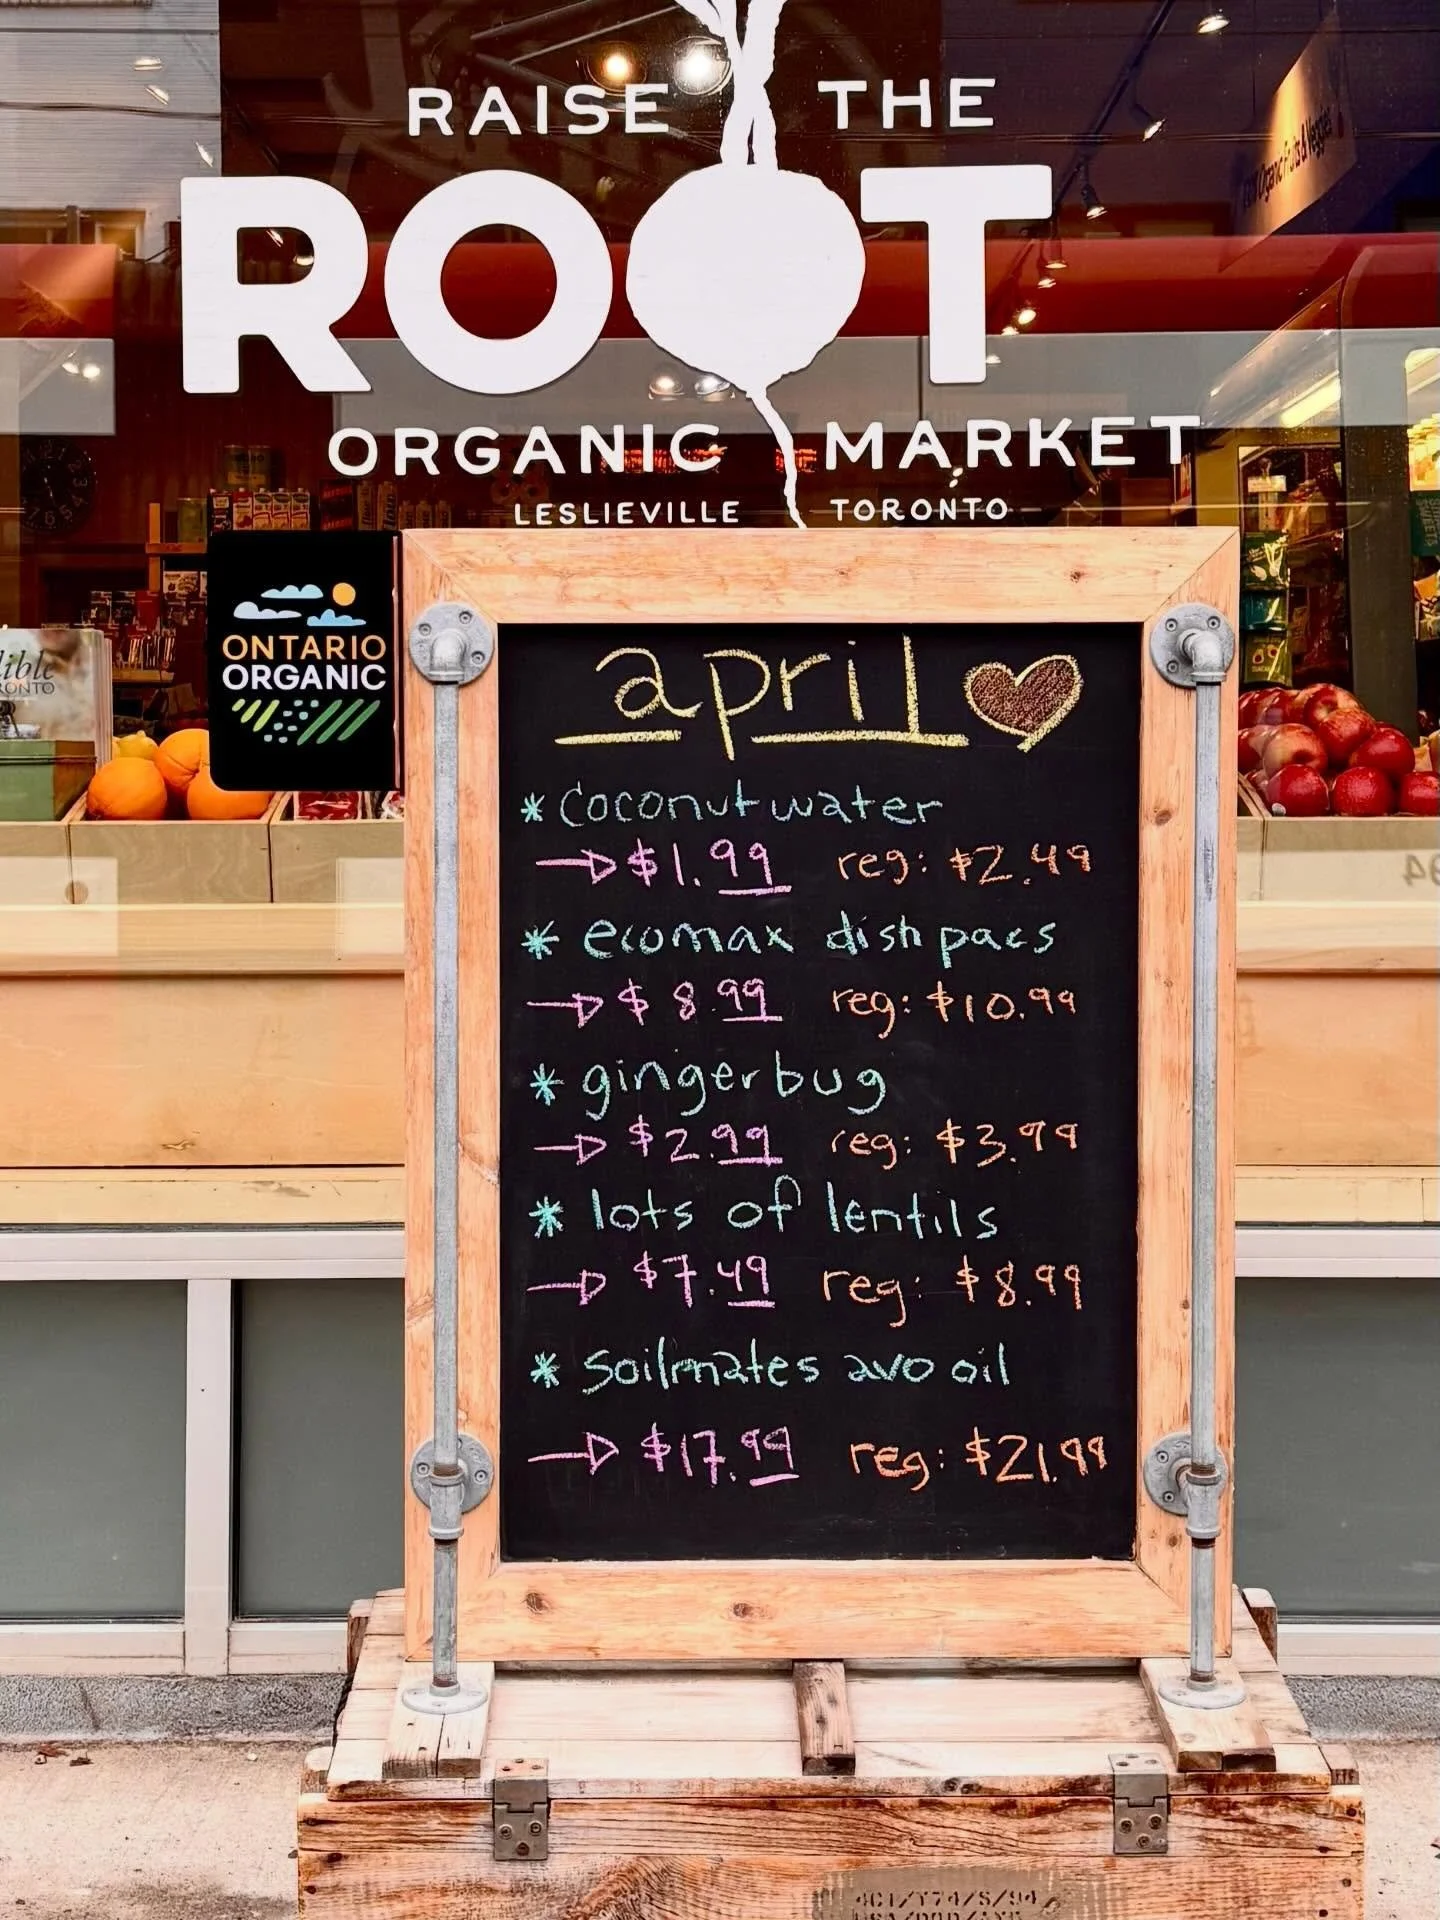 RAISE THE
ROOT
ORGANIC MARKET
LESLIEVILLE TORONTO
ONTARIO
ORGANIC
april
* coconut water
$1.99 reg: $2.49
* ecomax dish pacs
$8.99 reg: $10.99
* ginger bug
$2.99 reg: $3.99
* lots of lentils
$7.49 reg: $8.99
* soilmates avo oil
$17.99 reg: $21.99